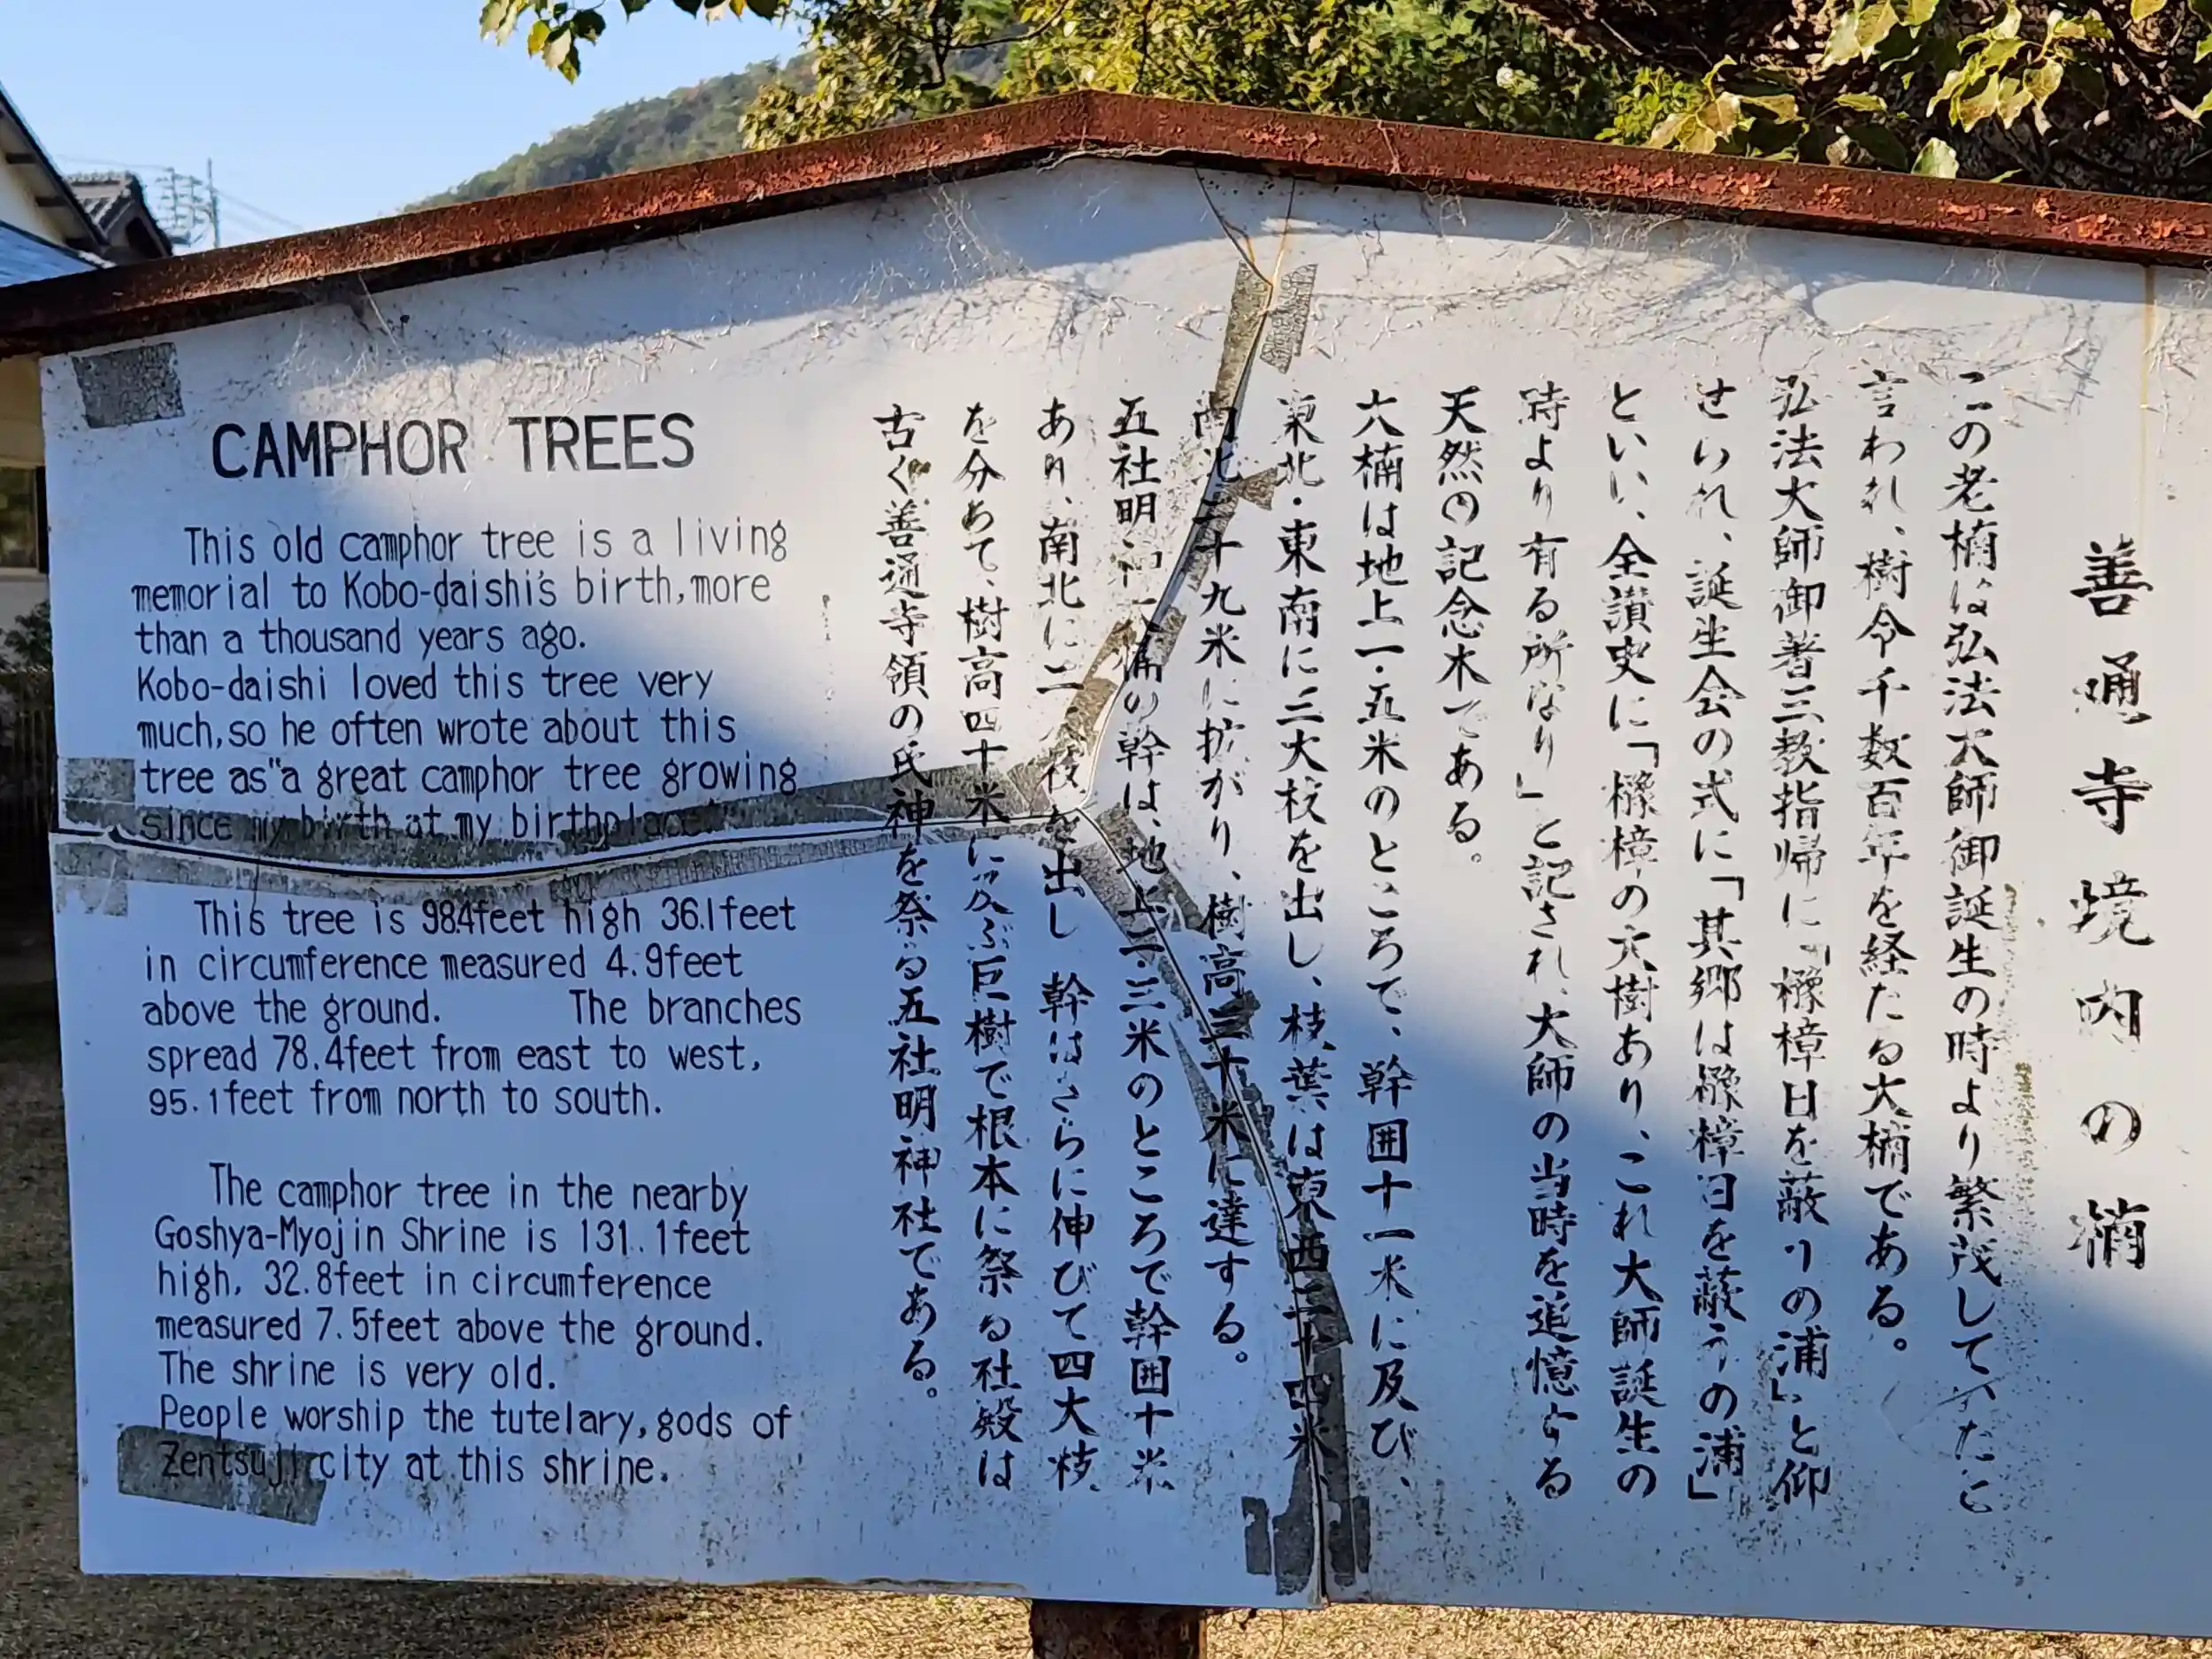 善通寺境内の楠
この老楠は弘法大師御誕生の時より繁茂していたと
言われ、樹令千数百年を経たる大楠である。
弘法大師御著三教指帰に「櫲樟日を蔽うの浦」と仰
せられ、誕生会の式に「其郷は櫲樟日を蔽うの浦」
といい、全讃史に「櫲樟の大樹あり、これ大師誕生の
時より有る所なり」と記され、大師の当時を追憶する
天然の記念木である。
大楠は地上一・五米のところで、幹囲十一米に及び、
東北・東南に三大枝を出し、枝葉は東西二十四米、
南北二十九米に拡がり、樹高三十米に達する。
五社明神大楠の幹は、地上二・三米のところで幹囲十米
あり、南北に二大枝を出し幹はさらに伸びて四大枝
を分あて、樹高四十米に及ぶ巨樹で根本に祭る社殿は
古く善通寺領の氏神を祭る五社明神社である。
CAMPHOR TREES
This old camphor tree is a living
memorial to Kobo-daishi's birth, more
than a thousand years ago.
Kobo-daishi loved this tree very
much, so he often wrote about this
tree as "a great camphor tree growing
since my birth at my birthplace."
This tree is 98.4feet high 36.1feet
in circumference measured 4.9feet
above the ground. The branches
spread 78.4feet from east to west,
95.1feet from north to south.
The camphor tree in the nearby
Goshya-Myojin Shrine is 131.1feet
high, 32.8feet in circumference
measured 7.5feet above the ground.
The shrine is very old.
People worship the tutelary, gods of
Zentsuji city at this shrine.